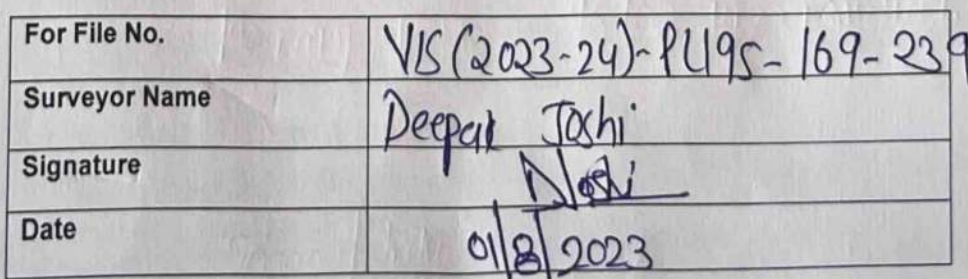 For File No. VIS(2023-24)-PL195-169-239
Surveyor Name Deepak Joshi
Signature DJoshi
Date 01/8/2023